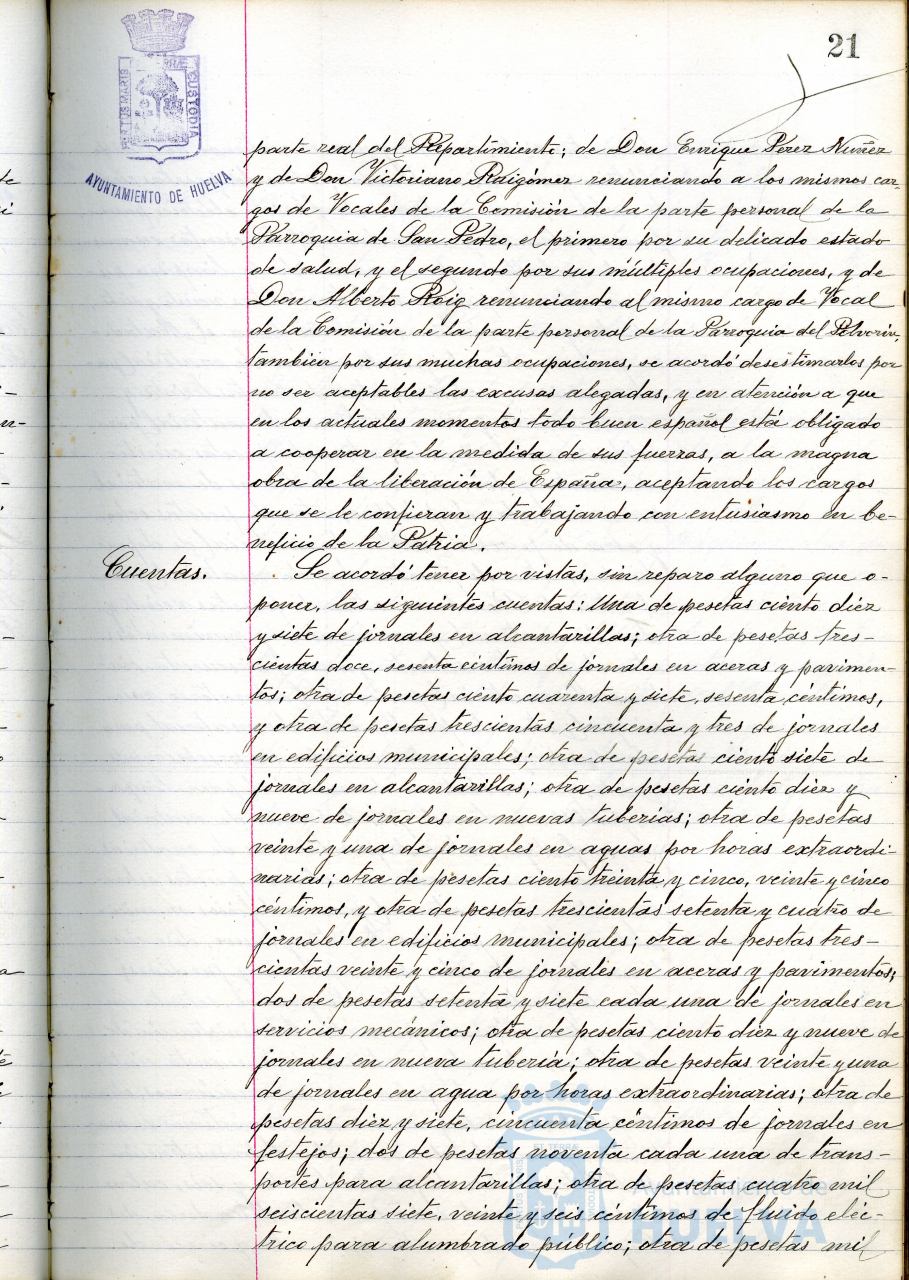 21
PORTUS MARIS ET TERRÆ CUSTODIA
AYUNTAMIENTO DE HUELVA
parte real del Repartimiento; de Don Enrique Pérez Nuñez
y de Don Victoriano Raigómez renunciando a los mismos car-
gos de Vocales de la Comisión de la parte personal de la
Parroquia de San Pedro, el primero por su delicado estado
de salud, y el segundo por sus múltiples ocupaciones, y de
Don Alberto Roig renunciando al mismo cargo de Vocal
de la Comisión de la parte personal de la Parroquia del Polvorín,
también por sus muchas ocupaciones, se acordó desestimarlos por
no ser aceptables las excusas alegadas, y en atención a que
en los actuales momentos todo buen español está obligado
a cooperar en la medida de sus fuerzas, a la magna
obra de la liberación de España, aceptando los cargos
que se le confieran y trabajando con entusiasmo en be-
neficio de la Patria.
Cuentas.
Se acordó tener por vistas, sin reparo alguno que o-
poner, las siguientes cuentas: Una de pesetas ciento diez
y siete de jornales en alcantarillas; otra de pesetas tres-
cientas doce, sesenta céntimos de jornales en aceras y pavimen-
tos; otra de pesetas ciento cuarenta y siete, sesenta céntimos,
y otra de pesetas trescientas cincuenta y tres de jornales
en edificios municipales; otra de pesetas ciento siete de
jornales en alcantarillas; otra de pesetas ciento diez y
nueve de jornales en nuevas tuberías; otra de pesetas
veinte y una de jornales en aguas por horas extraordi-
narias; otra de pesetas ciento treinta y cinco, veinte y cinco
céntimos, y otra de pesetas trescientas setenta y cuatro de
jornales en edificios municipales; otra de pesetas tres-
cientas veinte y cinco de jornales en aceras y pavimentos;
dos de pesetas setenta y siete cada una de jornales en
servicios mecánicos; otra de pesetas ciento diez y nueve de
jornales en nueva tubería; otra de pesetas veinte y una
de jornales en agua por horas extraordinarias; otra de
pesetas diez y siete, cincuenta céntimos de jornales en
festejos; dos de pesetas noventa cada una de trans-
portes para alcantarillas; otra de pesetas cuatro mil
seiscientas siete, veinte y seis céntimos de fluido eléc-
trico para alumbrado público; otra de pesetas mil
Ayuntamiento de
HUELVA